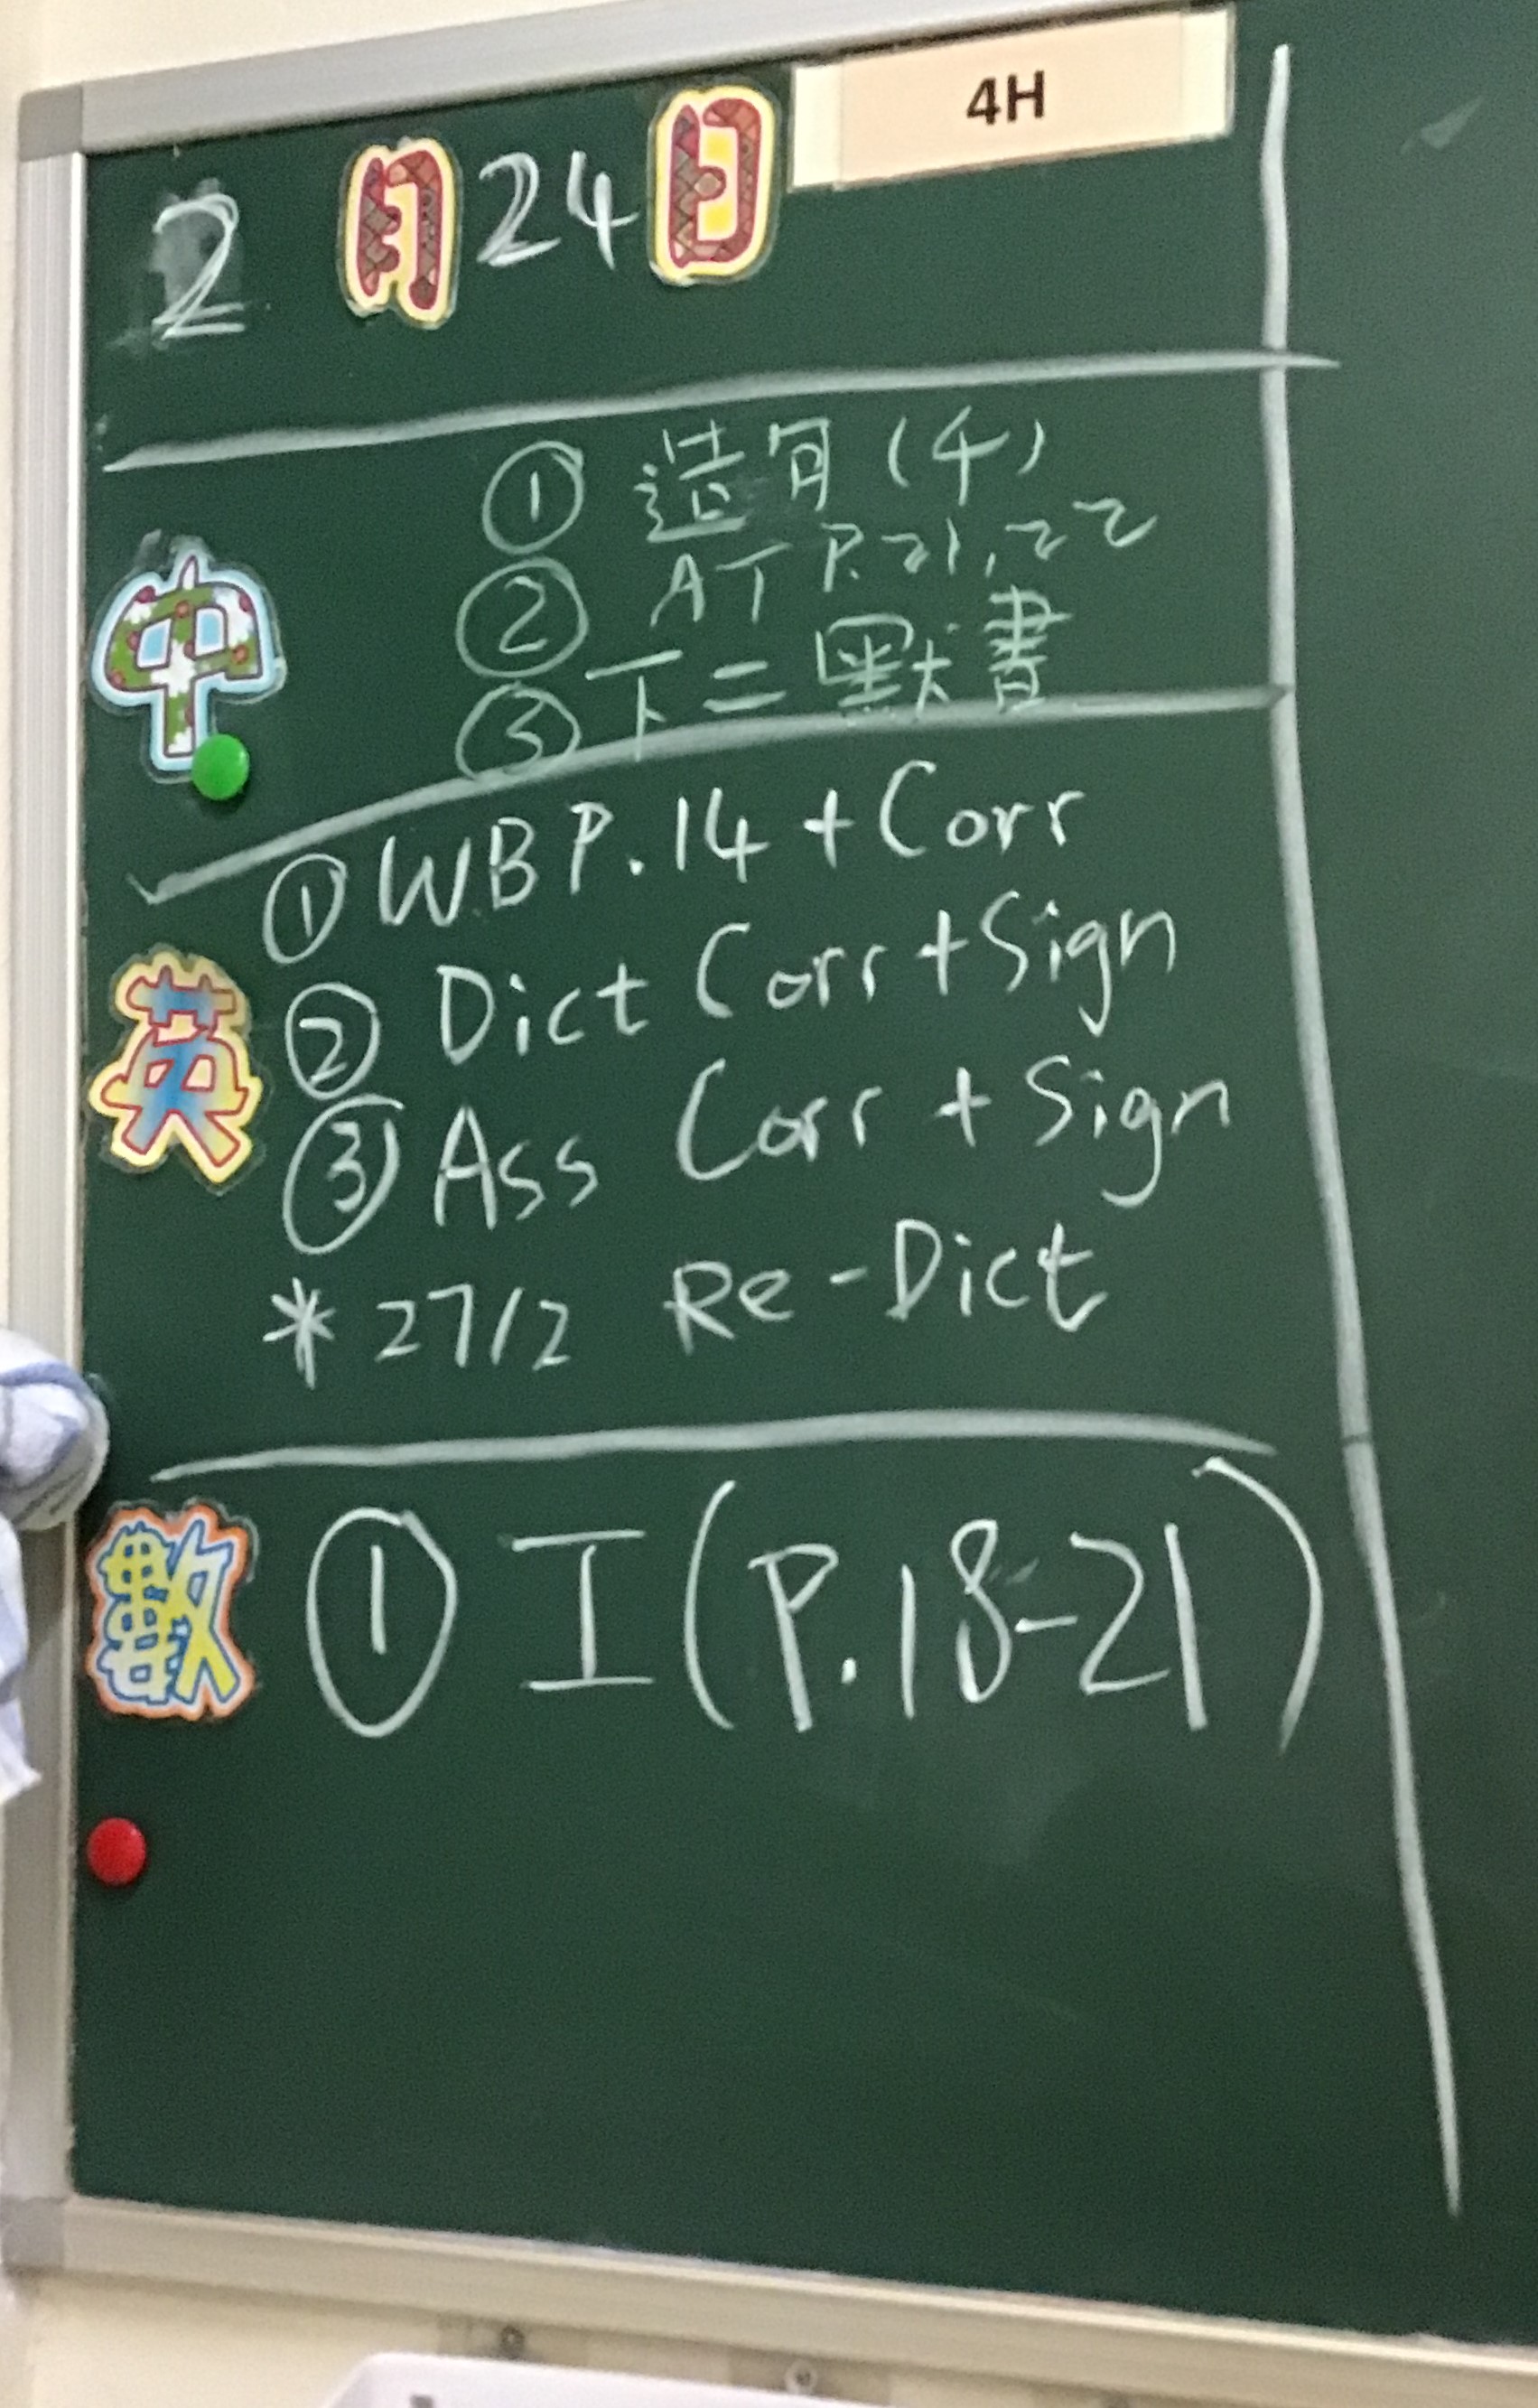 4H
2月24日
中
① 造句(千)
② AT P.21,22
③ 下二默書
英
① WB P.14 + Corr
② Dict Corr + Sign
③ Ass Corr + Sign
* 27/2 Re-Dict
數
① I (P.18-21)